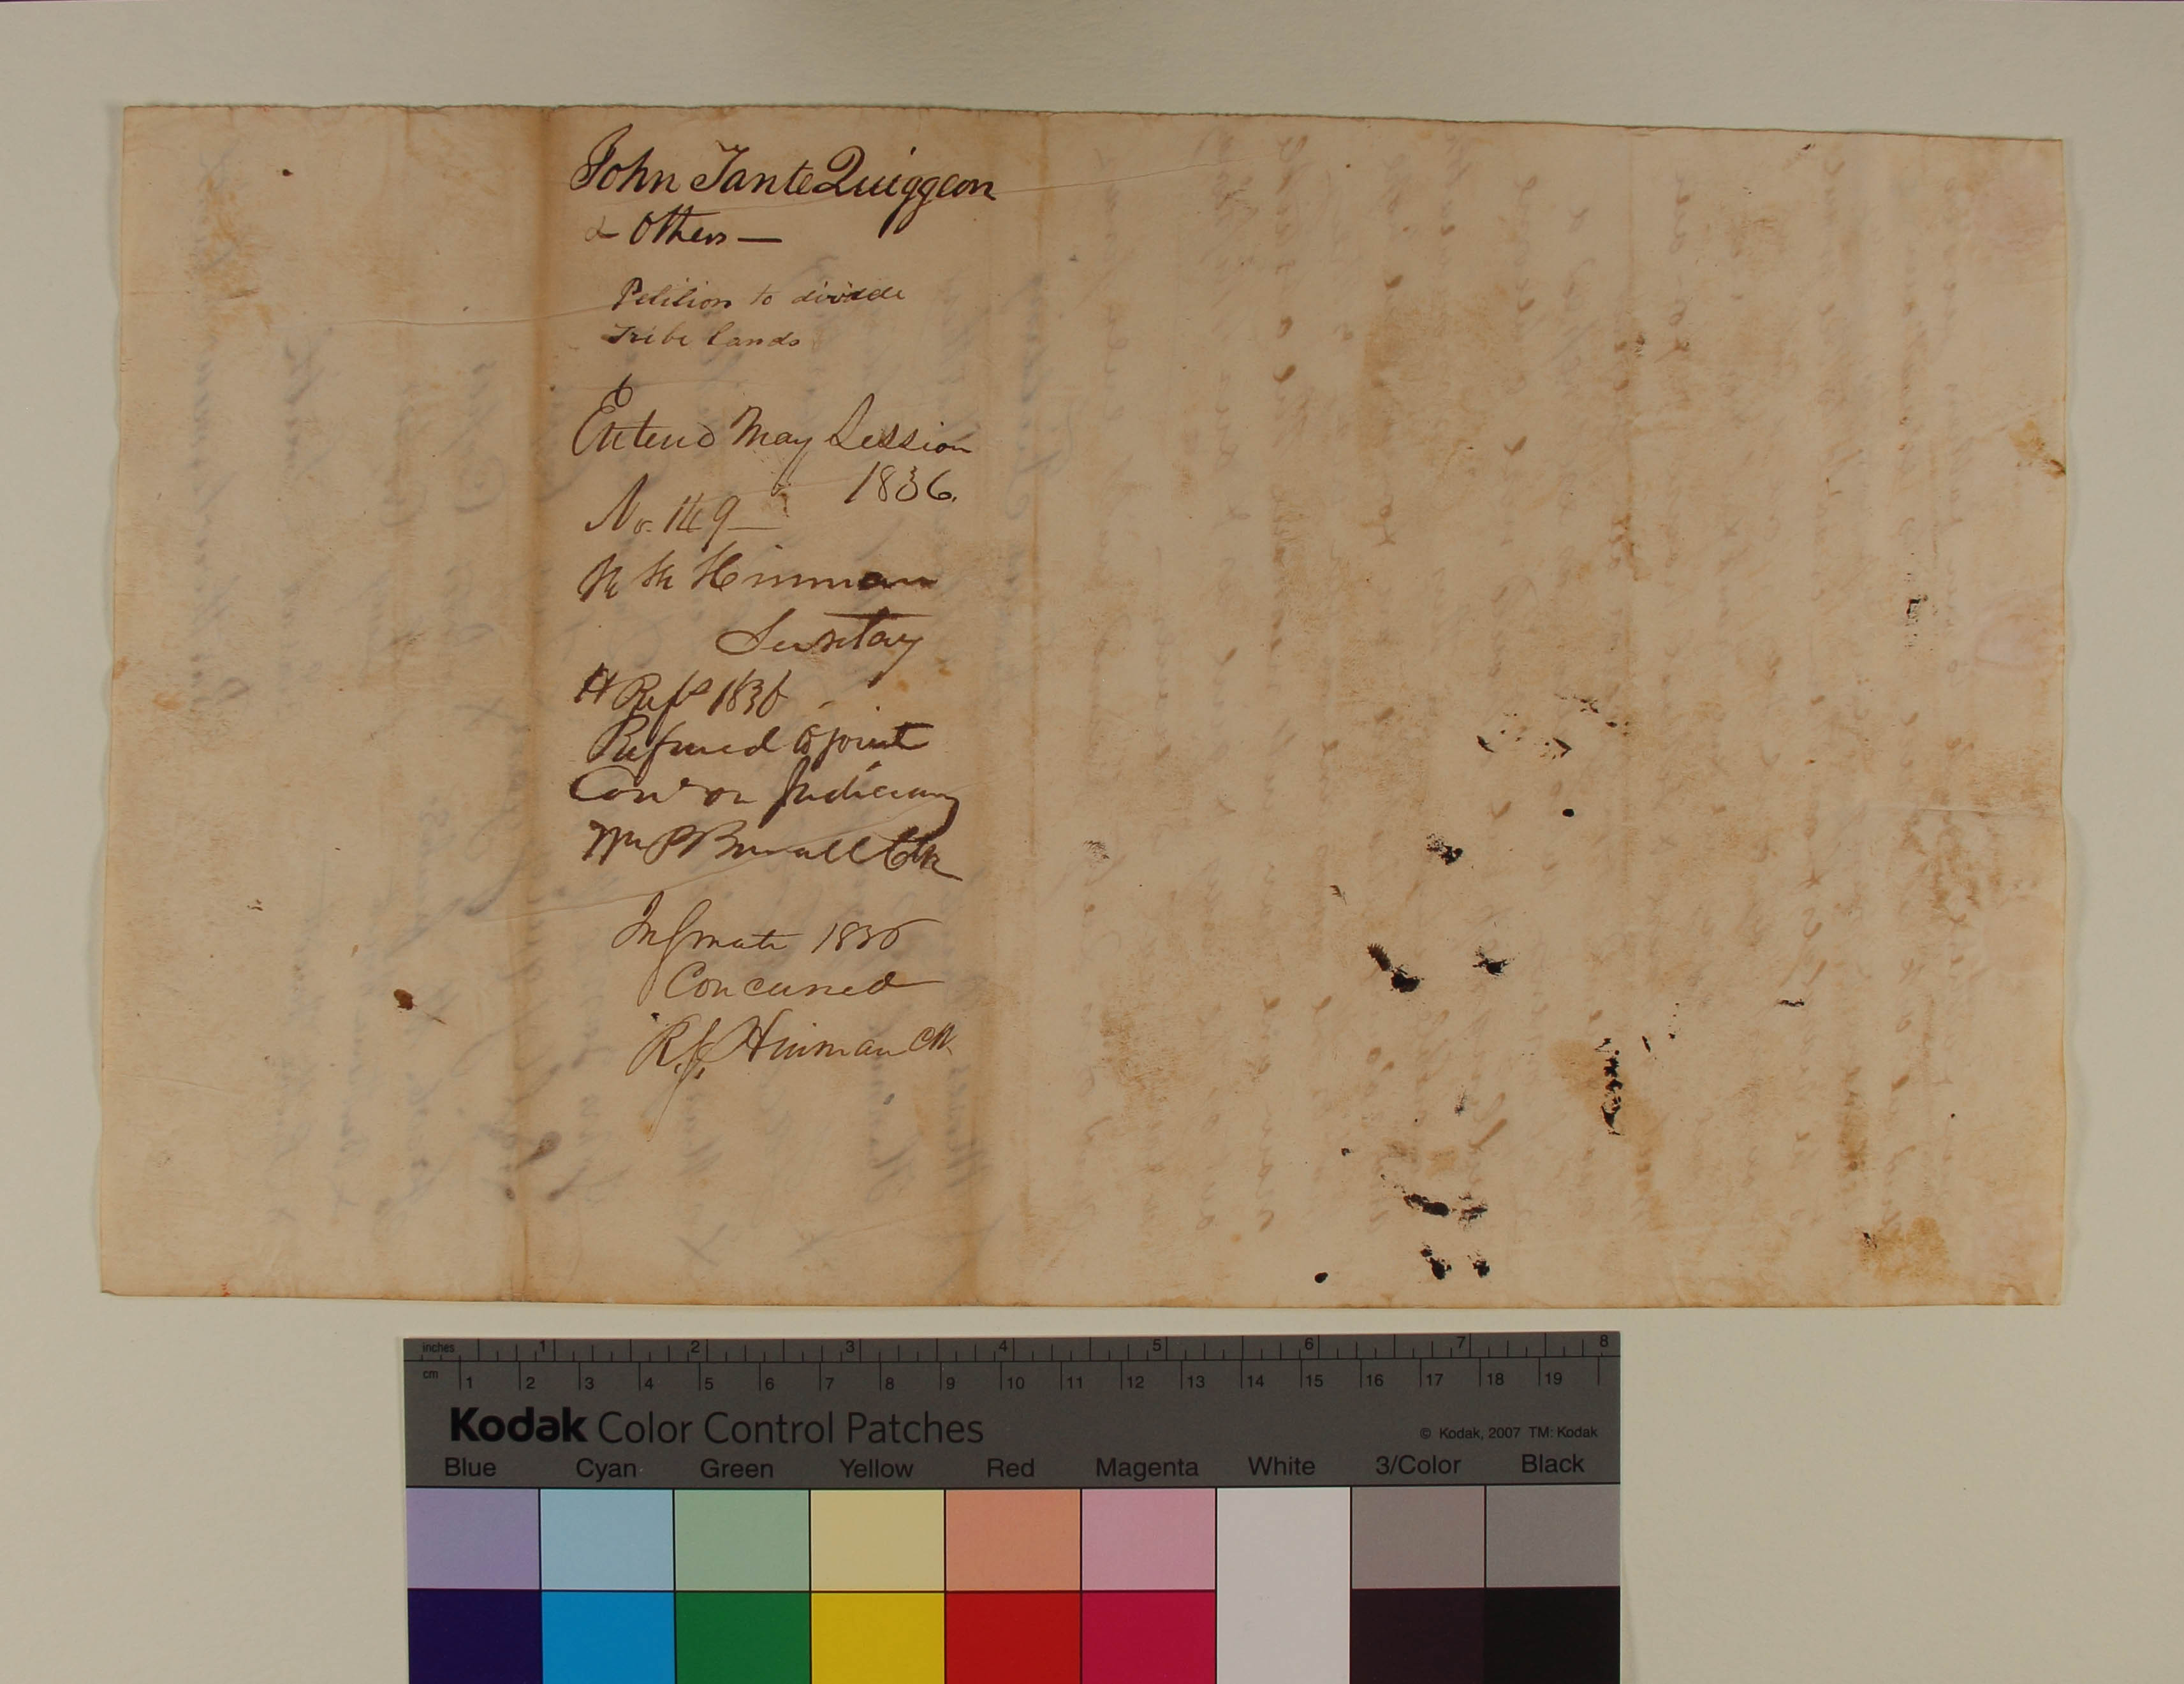 John TanteQuiggeon
& Others —
Petition to divide
Tribe lands
6
Entend May Session
1836.
No. 149
R R Hinman
Secretay
H Reps 1836
Referred to joint
Come on Judiciary
Wm P Burrall Clk
In Senate 1836
Concurred
R. G. Hinman Clk
inches 1 2 3 4 5 6 7 8
cm 1 2 3 4 5 6 7 8 9 10 11 12 13 14 15 16 17 18 19
Kodak Color Control Patches
© Kodak, 2007 TM: Kodak
Blue Cyan Green Yellow Red Magenta White 3/Color Black